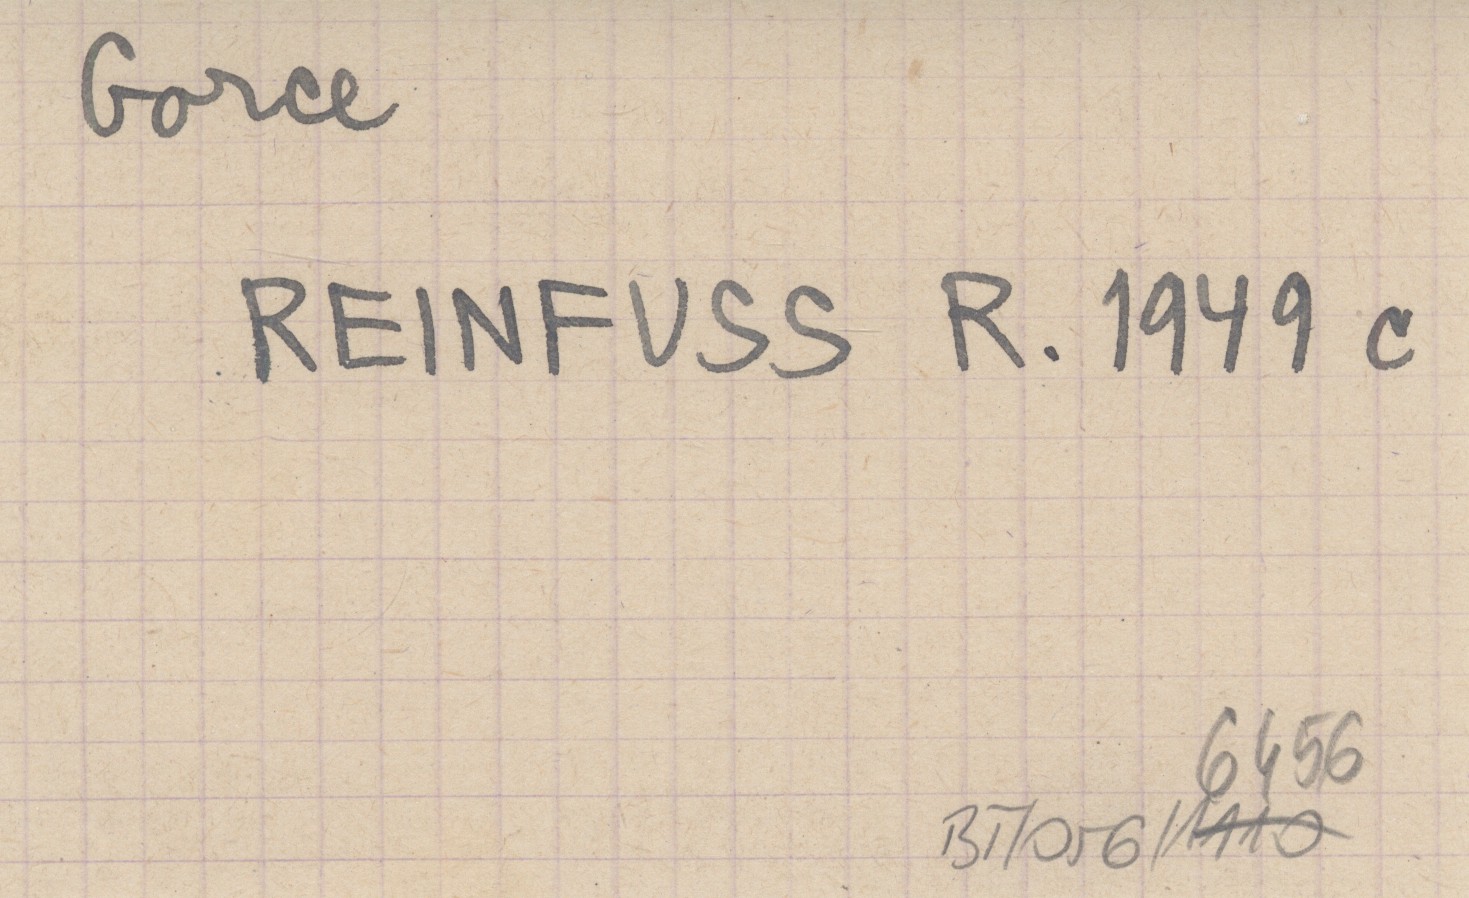 Gorce
REINFUSS R. 1949 c
6456
BT/056/1110